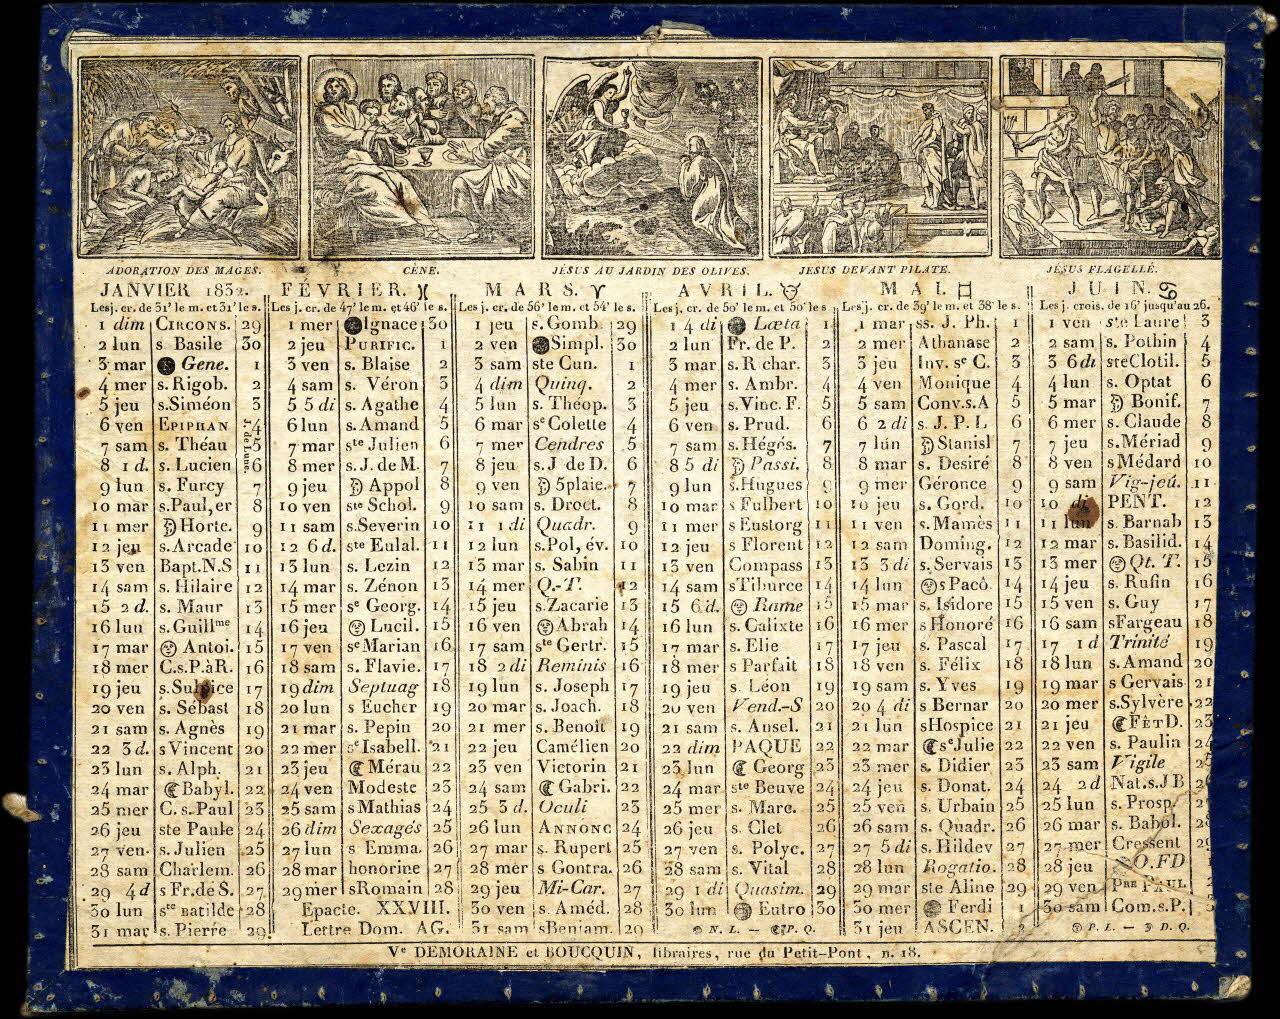 ADORATION DES MAGES.
CÈNE.
JÉSUS AU JARDIN DES OLIVES.
JESUS DEVANT PILATE.
JÉSUS FLAGELLÉ.
JANVIER 1832. FÉVRIER. ♓ MARS. ♈ AVRIL. ♉ MAI. ♊ JUIN. ♋
Les j. cr. de 31' le m. et 31' le s. Les j. cr. de 47' le m. et 46' le s. Les j. cr. de 56' le m. et 54' le s. Les j. cr. de 50' le m. et 50' le s Les j. cr. de 39' le m. et 38' le s. Les j. crois. de 16' jusqu'au 26.
1 dim CIRCONS. 29 1 mer Ignace 30 1 jeu s. Gomb. 29 1 4 di Læta 1 1 mar ss. J. Ph. 1 1 ven ste Laure 3
2 lun s Basile 30 2 jeu PURIFIC. 1 2 ven Simpl. 30 2 lun Fr. de P. 2 2 mer Athanase 2 2 sam s. Pothin 4
3 mar Gene. 1 3 ven s. Blaise 2 3 sam ste Cun. 1 3 mar s. R char. 3 3 jeu Inv. se C. 3 3 6 di ste Clotil. 5
4 mer s. Rigob. 2 4 sam s. Véron 3 4 dim Quinq. 2 4 mer s. Ambr. 4 4 ven Monique 4 4 lun s. Optat 6
5 jeu s. Siméon 3 5 5 di s. Agathe 4 5 lun s. Théop. 3 5 jeu s. Vinc. F. 5 5 sam Conv. s. A 5 5 mar Bonif. 7
6 ven EPIPHAN 4 6 lun s. Amand 5 6 mar se Colette 4 6 ven s. Prud. 6 6 2 di s. J. P. L 6 6 mer s. Claude 8
7 sam s. Théau 5 7 mar ste Julien 6 7 mer Cendres 5 7 sam s. Hégés. 7 7 lun Stanisl 7 7 jeu s. Mériad 9
8 1 d. s. Lucien 6 8 mer s. J. de M. 7 8 jeu s. J de D. 6 8 5 di Passi. 8 8 mar s. Desiré 8 8 ven s Médard 10
J. de Lune.
9 lun s. Furcy 7 9 jeu Appol 8 9 ven 5 plaie. 7 9 lun s. Hugues 9 9 mer Géronce 9 9 sam Vig-jeû. 11
10 mar s. Paul, er 8 10 ven ste Schol. 9 10 sam s. Droct. 8 10 mar s Fulbert 10 10 jeu s. Gord. 10 10 di PENT. 12
11 mer Horte. 9 11 sam s. Severin 10 11 1 di Quadr. 9 11 mer s Eustorg 11 11 ven s. Mamès 11 11 lun s. Barnab 13
12 jeu s. Arcade 10 12 6 d. ste Eulal. 11 12 lun s. Pol, év. 10 12 jeu s Florent 12 12 sam Doming. 12 12 mar s. Basilid. 14
13 ven Bapt. N.S 11 13 lun s. Lezin 12 13 mar s. Sabin 11 13 ven Compass 13 13 3 di s. Servais 13 13 mer Qt. T. 15
14 sam s. Hilaire 12 14 mar s. Zénon 13 14 mer Q.-T. 12 14 sam s Tiburce 14 14 lun s Pacô. 14 14 jeu s. Rufin 16
15 2 d. s. Maur 13 15 mer se Georg. 14 15 jeu s. Zacarie 13 15 6 d. Rame 15 15 mar s. Isidore 15 15 ven s. Guy 17
16 lun s. Guillme 14 16 jeu Lucil. 15 16 ven Abrah 14 16 lun s. Calixte 16 16 mer s Honoré 16 16 sam s Fargeau 18
17 mar Antoi. 15 17 ven se Marian 16 17 sam ste Gertr. 15 17 mar s. Elie 17 17 jeu s. Pascal 17 17 1 d Trinité 19
18 mer C. s. P. à R. 16 18 sam s. Flavie. 17 18 2 di Reminis 16 18 mer s Parfait 18 18 ven s. Félix 18 18 lun s. Amand 20
19 jeu s. Sulpice 17 19 dim Septuag 18 19 lun s. Joseph 17 19 jeu s. Léon 19 19 sam s. Yves 19 19 mar s Gervais 21
20 ven s. Sébast 18 20 lun s Eucher 19 20 mar s. Joach. 18 20 ven Vend.-S 20 20 4 di s Bernar 20 20 mer s. Sylvère 22
21 sam s. Agnès 19 21 mar s. Pepin 20 21 mer s. Benoît 19 21 sam s. Ansel. 21 21 lun s Hospice 21 21 jeu FÊT D. 23
22 3 d. s Vincent 20 22 mer se Isabell. 21 22 jeu Camélien 20 22 dim PAQUE 22 22 mar se Julie 22 22 ven s. Paulin 24
23 lun s. Alph. 21 23 jeu Mérau 22 23 ven Victorin 21 23 lun Georg 23 23 mer s. Didier 23 23 sam Vigile 25
24 mar Babyl. 22 24 ven Modeste 23 24 sam Gabri. 22 24 mar ste Beuve 24 24 jeu s. Donat. 24 24 2 d Nat. s. J B 26
25 mer C. s. Paul 23 25 sam s Mathias 24 25 3 d. Oculi 23 25 mer s. Marc. 25 25 ven s. Urbain 25 25 lun s. Prosp.
26 jeu ste Paule 24 26 dim Sexagés 25 26 lun ANNONC 24 26 jeu s. Clet 26 26 sam s. Quadr. 26 26 mar s. Babol.
27 ven s. Julien 25 27 lun s Emma. 26 27 mar s. Rupert 25 27 ven s. Polyc. 27 27 5 di s. Hildev 27 27 mer Cressent
28 sam Charlem. 26 28 mar honorine 27 28 mer s Gontra. 26 28 sam s. Vital 28 28 lun Rogatio. 28 28 jeu O. FD
29 4 d s Fr. de S. 27 29 mer s Romain 28 29 jeu Mi-Car. 27 29 1 di Quasim. 29 29 mar ste Aline 29 29 ven PRE PAUL
30 lun ste BATILDE 28 Epacte. XXVIII. 30 ven s. Améd. 28 30 lun Eutro 30 30 mer Ferdi 1 30 sam Com. s. P.
31 mar s. Pierre 29 Lettre Dom. AG. 31 sam s Benjam. 29 N. L. — P. Q. 31 jeu ASCEN. 2 P. L. — D. Q.
Ve DEMORAINE et BOUCQUIN, libraires, rue du Petit-Pont, n. 18.